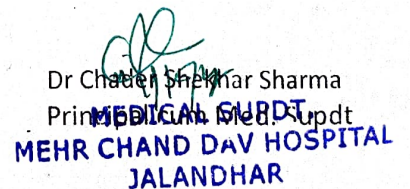 Dr Chader Shekhar Sharma
Principal cum Med. Supdt
MEDICAL SUPDT.
MEHR CHAND DAV HOSPITAL
JALANDHAR